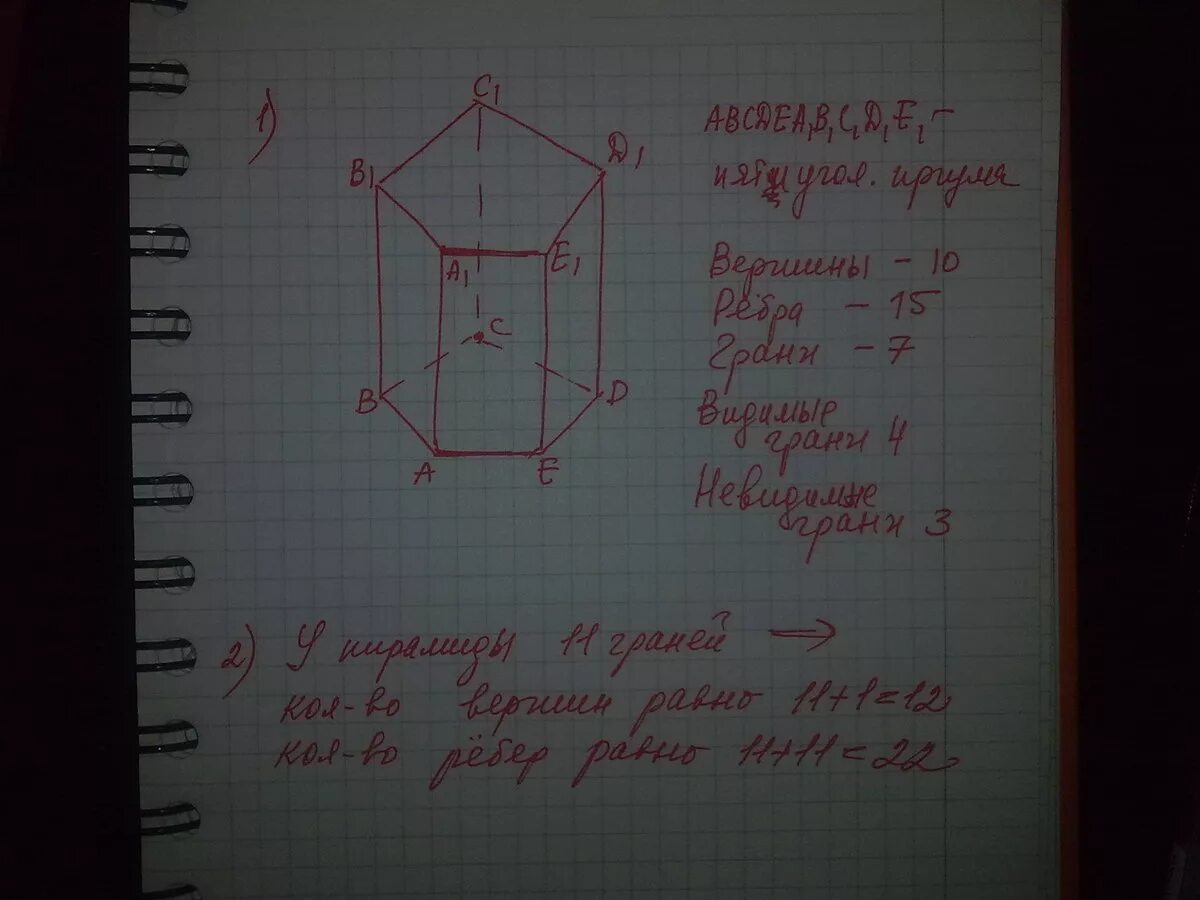 1)
C1
B1
D1
A1
E1
C
B
D
A
E
ABCDEA1B1C1D1E1 –
пятиугол. призма
Вершины – 10
Рёбра – 15
Грани – 7
Видимые
грани 4
Невидимые
грани 3
2) У пирамиды 11 граней →
кол-во вершин равно 11+1=12
кол-во рёбер равно 11+11=22